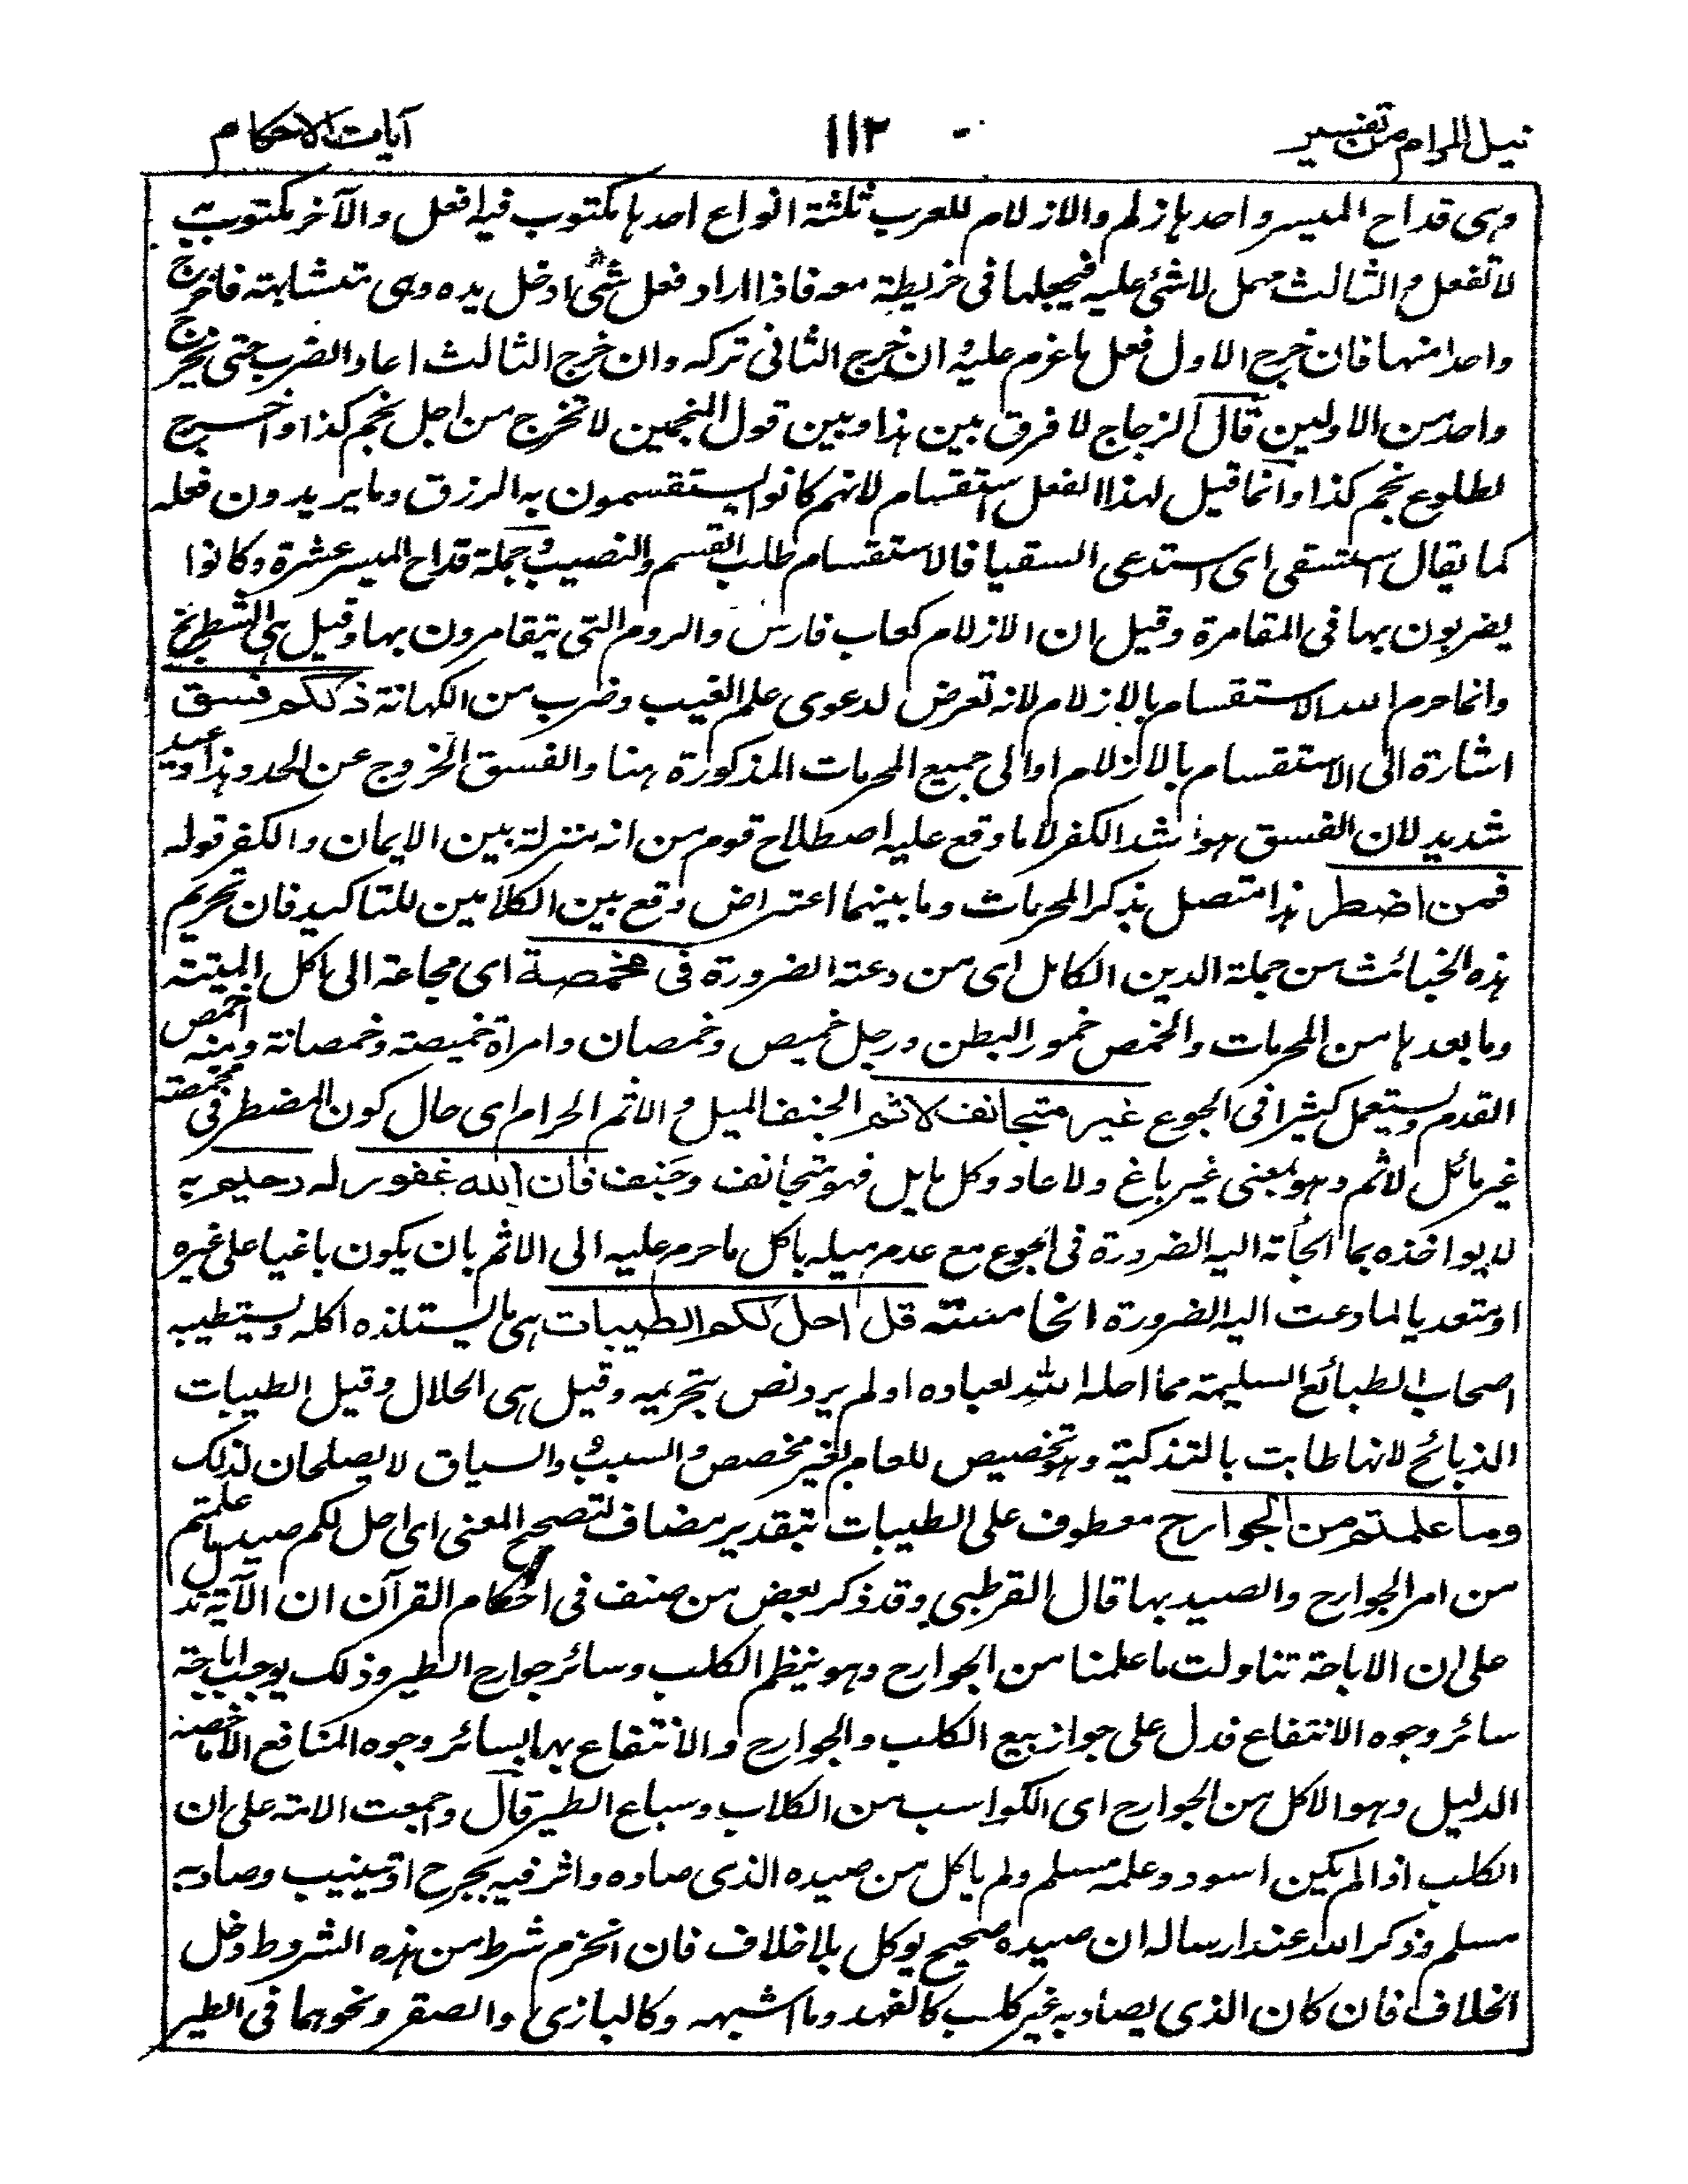 نيل المرام من تفسير ١١٢ آيات الاحكام
وهى قداح الميسر واحدها زلم والازلام للعرب ثلثة انواع احدها مكتوب فيه افعل والآخر مكتوب فيه
لا تفعل والثالث مهمل لا شئ عليه فيجعلها فى خريطة معه فاذا اراد فعل شئ ادخل يده وهى متشابهة فاخرج
واحدا منها فان خرج الاول فعل ما عزم عليه وان خرج الثانى تركه وان خرج الثالث اعاد الضرب حتى يخرج
واحد من الاولين قال الزجاج لا فرق بين هذا وبين قول المنجمين لا تخرج من اجل نجم كذا واخرج
لطلوع نجم كذا وانما قيل لهذا الفعل استقسام لانهم كانوا يستقسمون به الرزق وما يريدون فعله
كما يقال استسقى اى استدعى السقيا فالاستقسام طلب القسم والنصيب وجملة قداح الميسر عشرة وكانوا
يضربون بها فى المقامرة وقيل ان الازلام كعاب فارس والروم التى يتقامرون بها وقيل هى الشطرنج
وانما حرم الله الاستقسام بالازلام لانه تعرض لدعوى علم الغيب وضرب من الكهانة ذلكم فسق
اشارة الى الاستقسام بالازلام او الى جميع المحرمات المذكورة هنا والفسق الخروج عن الحد وهذا وعيد
شديد لان الفسق هو اشد الكفر لا ما وقع عليه اصطلاح قوم من انه منزلة بين الايمان والكفر قوله
فمن اضطر هذا متصل بذكر المحرمات وما بينهما اعتراض وقع بين الكلامين للتاكيد فان تحريم
هذه الخبائث من جملة الدين الكامل اى من دعته الضرورة فى مخمصة اى مجاعة الى اكل الميتة
وما بعدها من المحرمات والخمص ضمور البطن ورجل خميص وخمصان وامراة خميصة وخمصانة ومنه اخمص
القدم ويستعمل كثيرا فى الجوع غير متجانف لاثم الجنف الميل والاثم الحرام اى حال كون المضطر فى مخمصة
غير مائل لاثم وهو بمعنى غير باغ ولا عاد وكل مايل فهو متجانف وجنف فان الله غفور له رحيم به
لا يواخذه بما الجأته اليه الضرورة فى الجوع مع عدم ميله باكل ما حرم عليه الى الاثم بان يكون باغيا على غيره
او متعديا لما دعت اليه الضرورة الخامسة قل احل لكم الطيبات هى ما يستلذه اكله ويستطيبه
اصحاب الطبائع السليمة مما احله الله لعباده او لم يرد نص بتحريمه وقيل هى الحلال وقيل الطيبات
الذبائح لانها طابت بالتذكية وهو تخصيص للعام لغير مخصص والسبب والسياق لا يصلحان لذلك
وما علمتم من الجوارح معطوف على الطيبات بتقدير مضاف لتصحيح المعنى اى احل لكم صيد ما علمتم
من امر الجوارح والصيد بها قال القرطبى وقد ذكر بعض من صنف فى احكام القرآن ان الآية تدل
على ان الاباحة تناولت ما علمنا من الجوارح وهو ينظم الكلب وسائر جوارح الطير وذلك يوجب اباحة
سائر وجوه الانتفاع فدل على جواز بيع الكلب والجوارح والانتفاع بها بسائر وجوه المنافع الا ما خصه
الدليل وهو الاكل من الجوارح اى الكواسب من الكلاب وسباع الطير قال واجمعت الامة على ان
الكلب اذا لم يكن اسود وعلمه مسلم ولم ياكل من صيده الذى صاده واثر فيه بجرح او تنييب وصاد به
مسلم وذكر الله عند ارساله ان صيده صحيح يوكل بلا خلاف فان انخرم شرط من هذه الشروط دخل
الخلاف فان كان الذى يصاد به غير كلب كالفهد وما اشبهه وكالبازى والصقر ونحوهما فى الطير